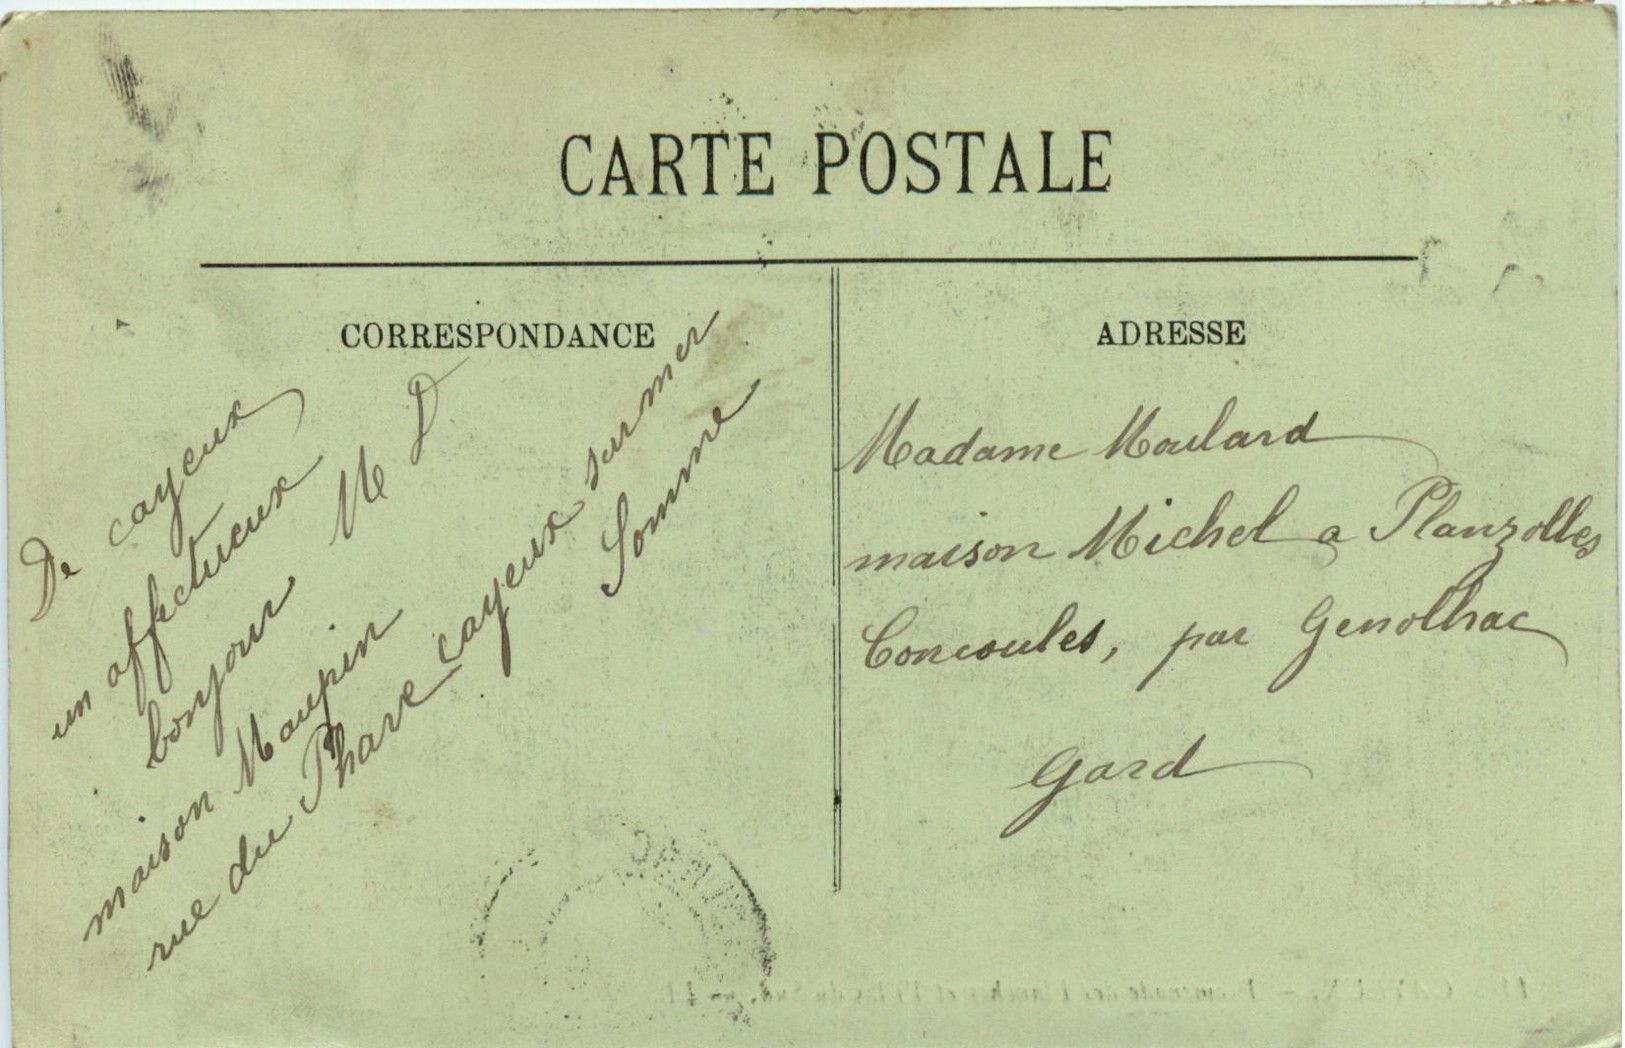 CARTE POSTALE
CORRESPONDANCE
De cayeux
un affectueux
bonjour M D
maison Maupin
rue du Phare cayeux sur mer
Somme
ADRESSE
Madame Moulard
maison Michel a Planzolles
Concoules, par Genolhac
Gard